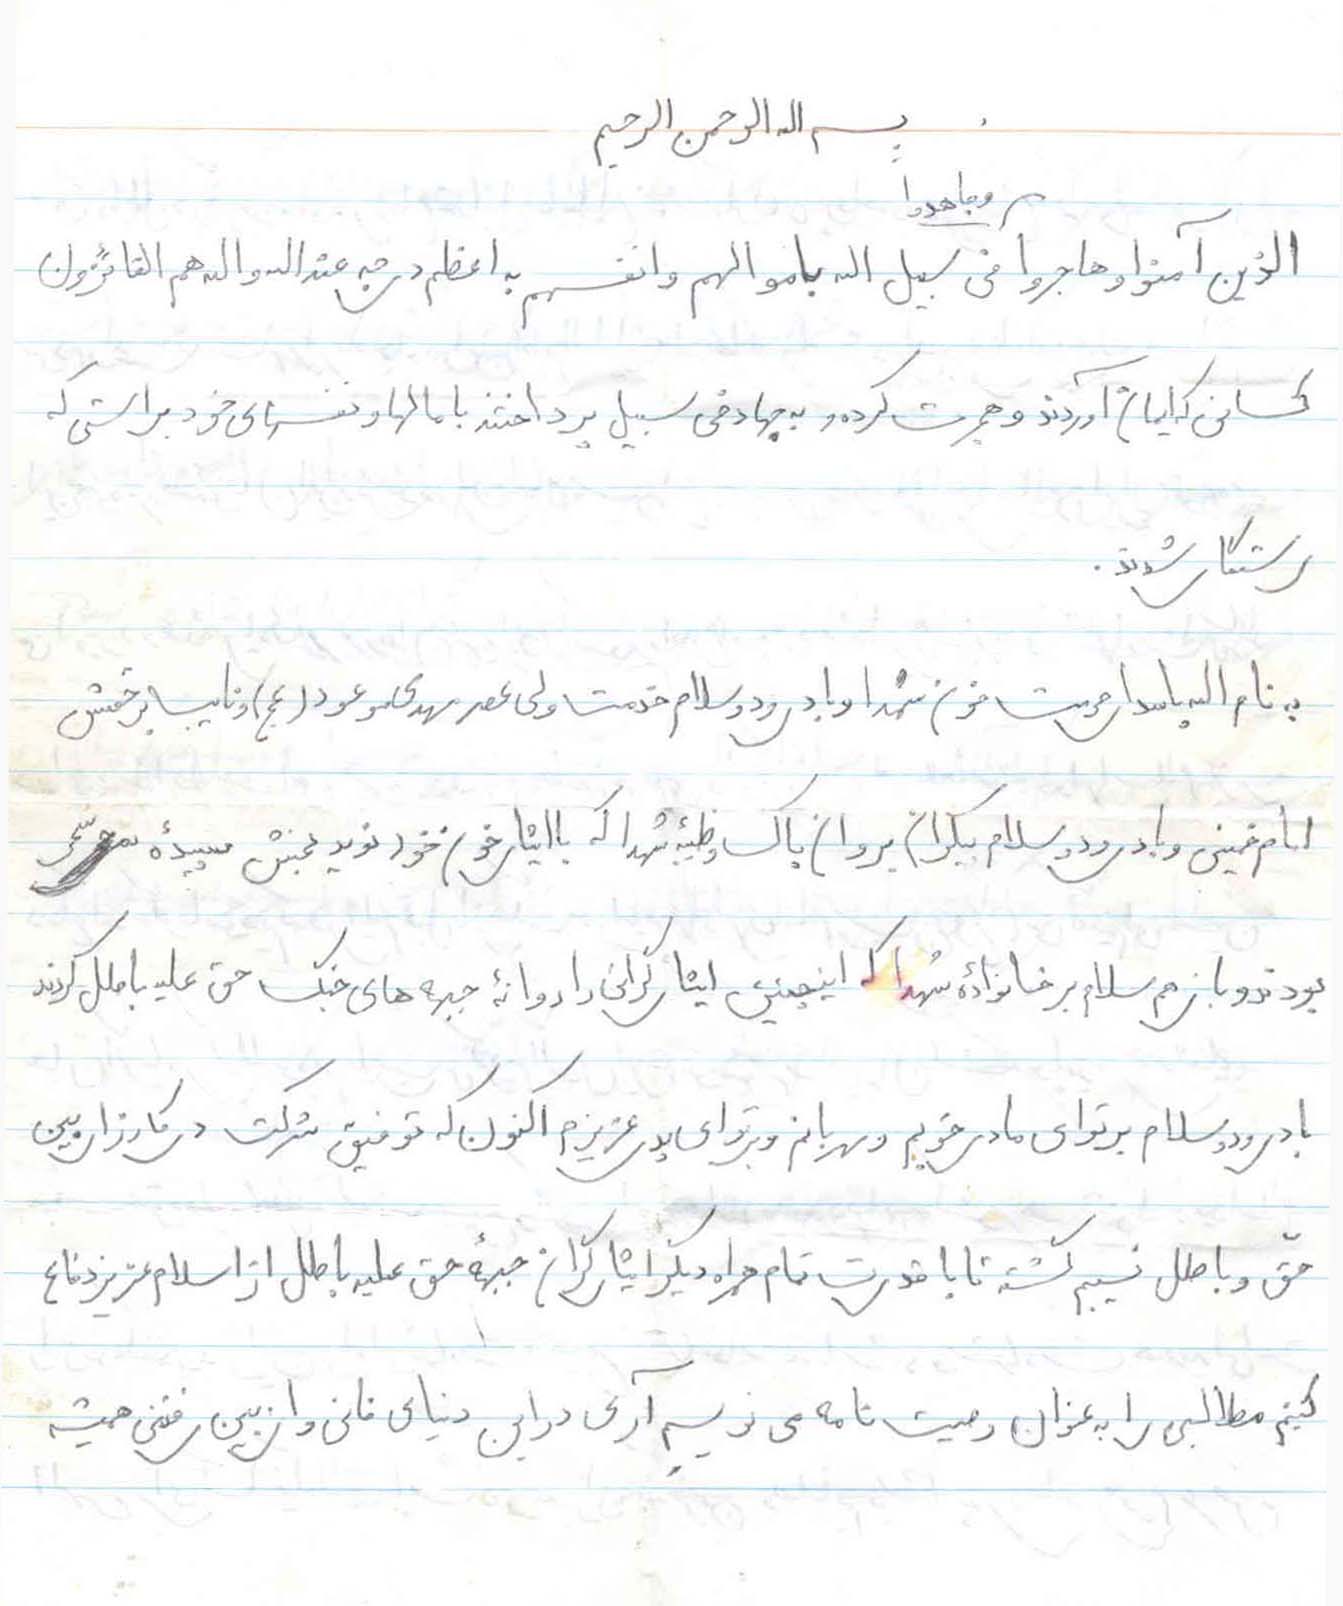 بسم الله الرحمن الرحیم
وجاهدوا
الذین آمنوا و هاجروا فی سبیل الله باموالهم و انفسهم به اعظم درجه عند الله و اله هم الفائزون
کسانی که ایمان آوردند و هجرت کرده و به جهاد فی سبیل پرداختند با مالها و نفسهای خود براستی که
رستگار شدند.
به نام الله پاسدار حرمت خون شهدا و با درود و سلام خدمت ولی عصر مهدی موعود (عج) و نایب برحقش
امام خمینی و با درود و سلام بیکران بروان پاک و طیبه شهدا که با ایثار خون خود نوید بخش سپیدهٔ سحر
بودند و باز هم سلام بر خانوادهٔ شهدا که اینچنین ایثارگرانی را روانهٔ جبهه های جنگ حق علیه باطل کردند
با درود و سلام بر تو ای مادر خوبم و مهربانم و بر تو ای پدر عزیزم اکنون که توفیق شرکت در کارزار بین
حقّ و باطل نسیبم گشته تا با قدرت تمام همراه دیگر ایثارگران جبههٔ حق علیه باطل از اسلام عزیز دفاع
کنیم مطالبی را به عنوان وصیت نامه می نویسم آری در این دنیای فانی و از بین رفتنی همیشه